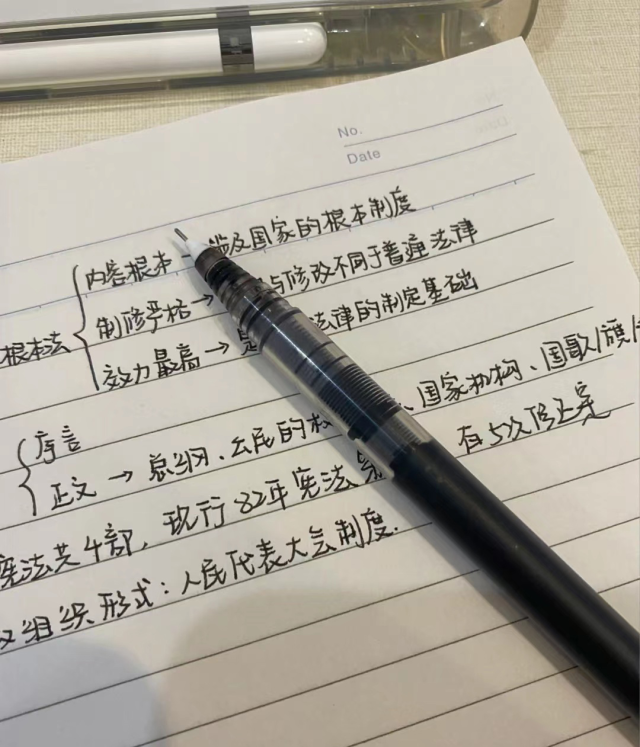 No.
Date
内容根本 涉及国家的根本制度
根本法 制修严格→ 与修改不同于普通法律
效力最高→是 法律的制定基础
序言
正文→总纲、公民的权 、国家机构、国歌/旗/
宪法共4部，现行82年宪法 有5次修正案
组织形式：人民代表大会制度.